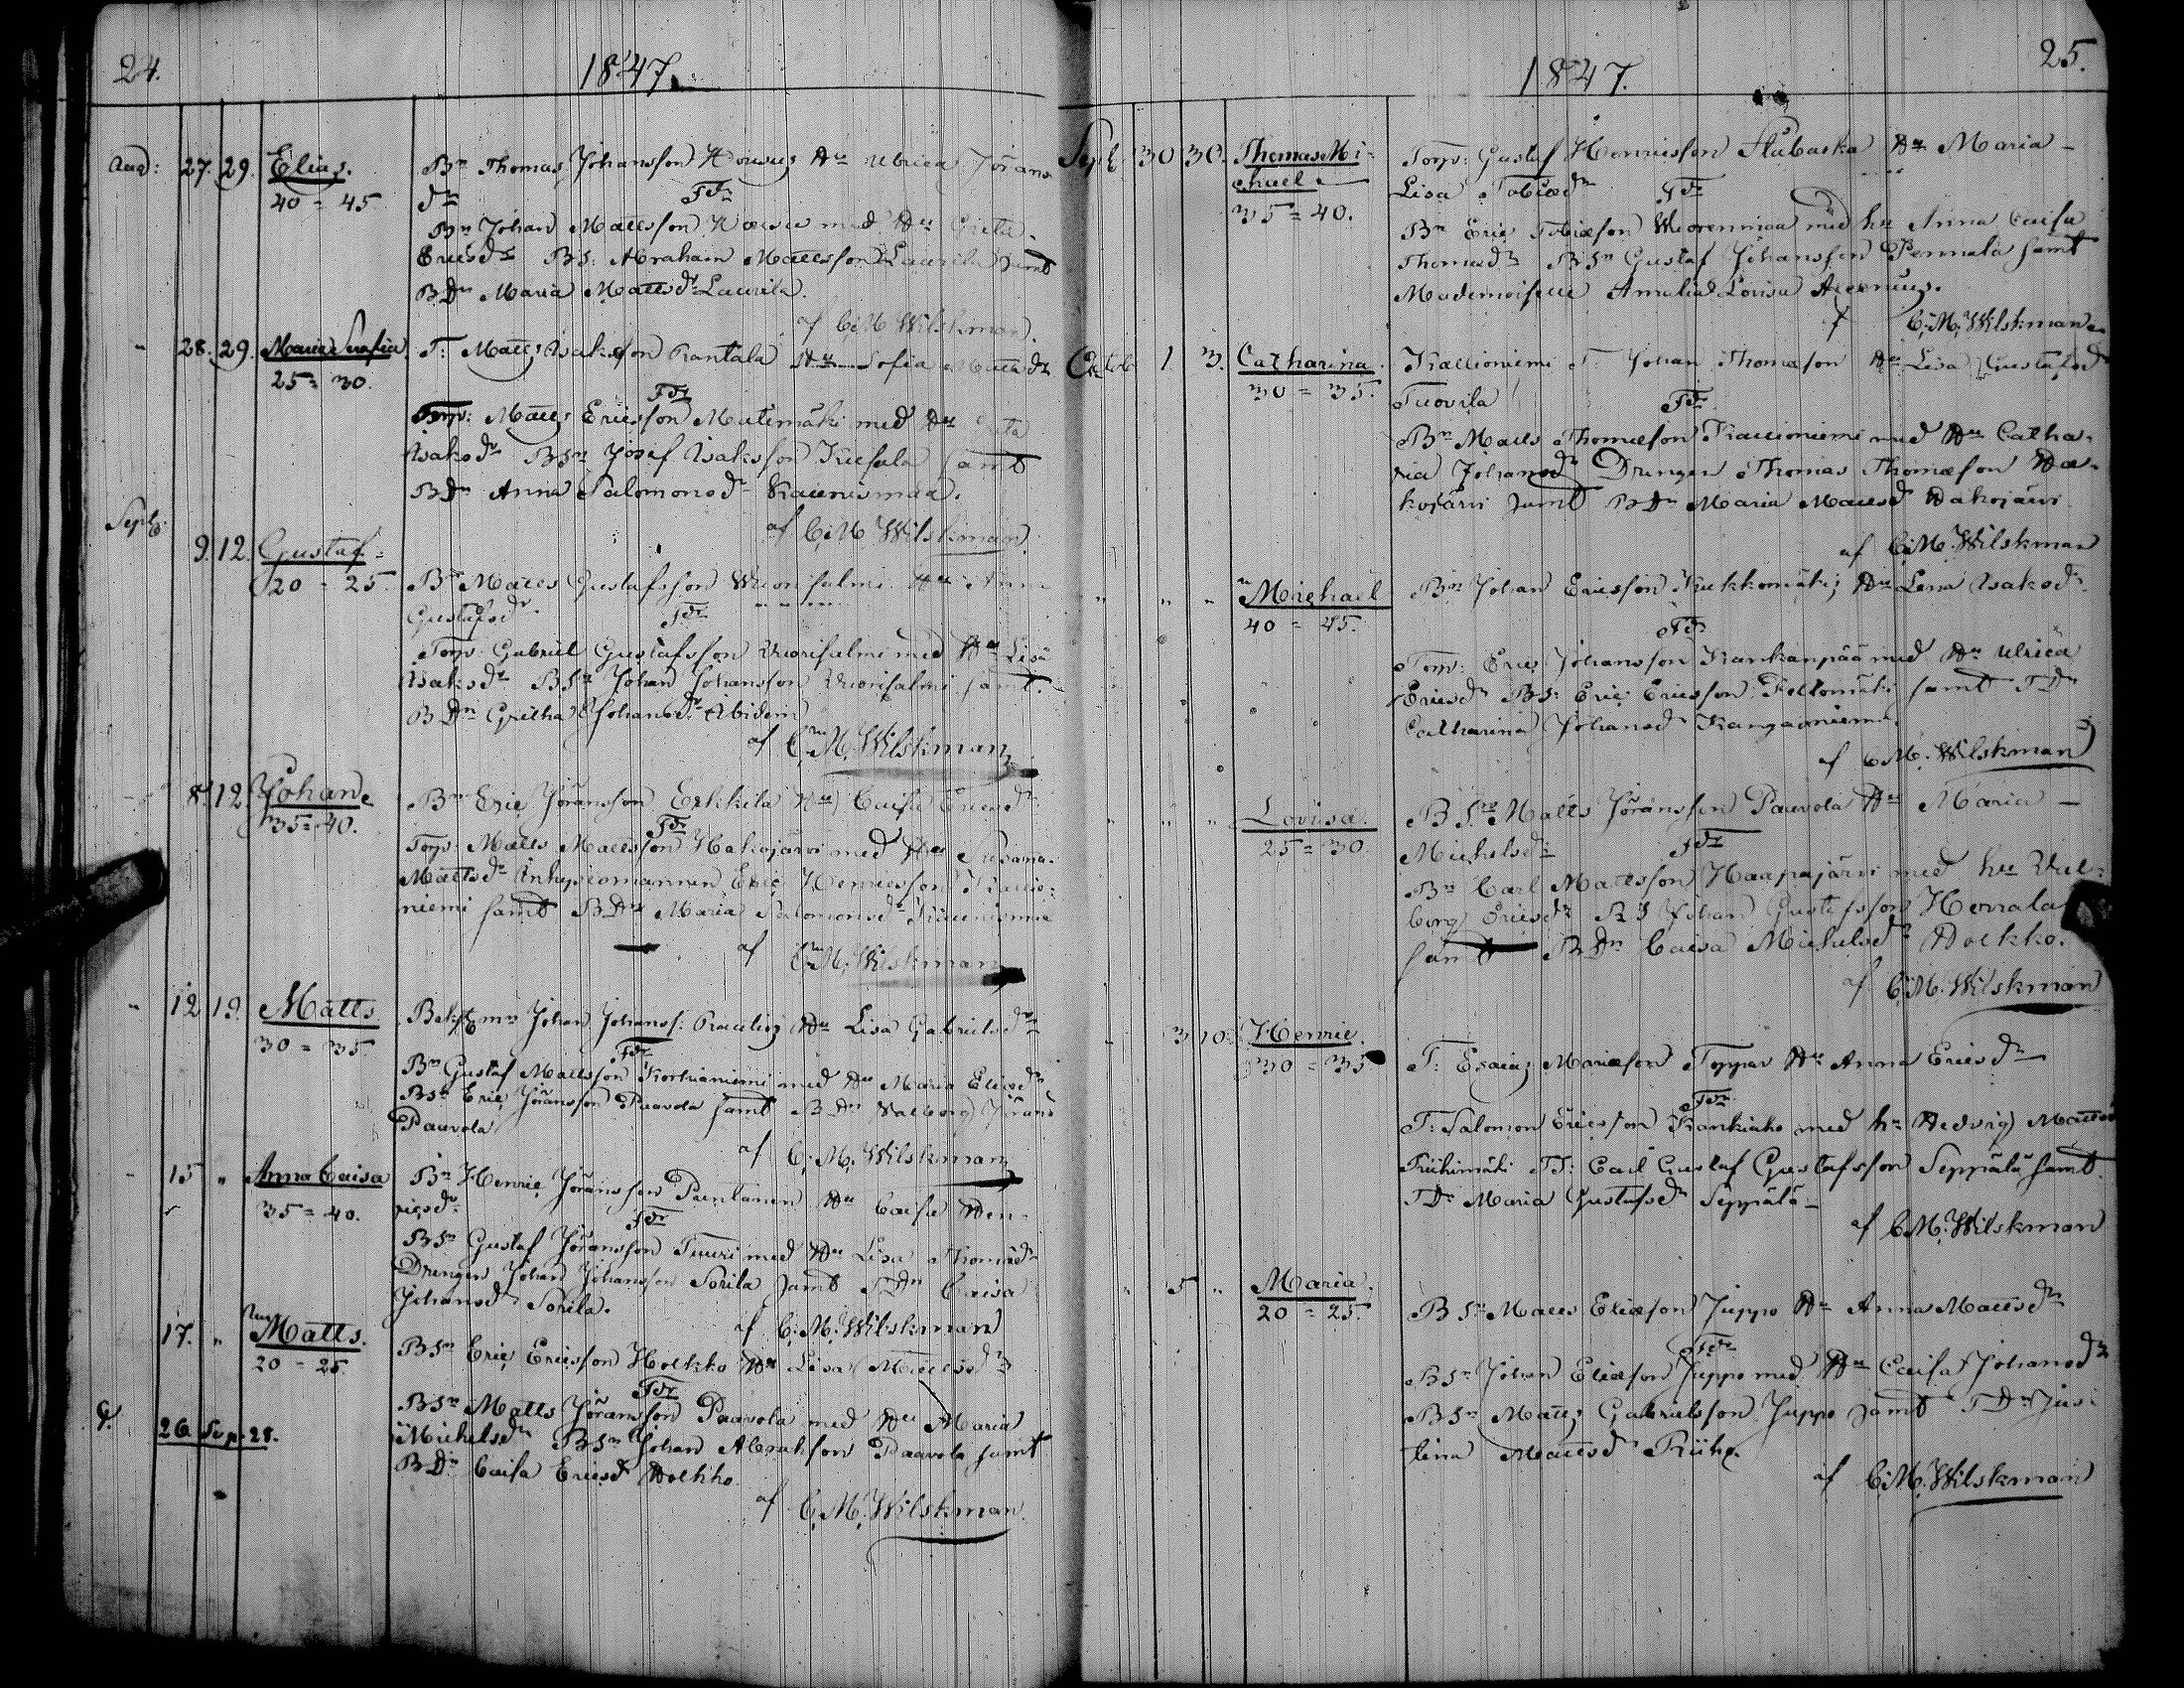 24.
1847.
Aug: 27. 29. Elias.
40 = 45
Bn Thomas Johansson Hu Ulrica Jörans
dr
Fdr
Bn Johan Mattsson med Hu Greta
Ericsdr BS: Abraham Mattsson Laurila samt
BDr Maria Mattsdr Laurila.
af C.M. Wilskman.
" 28. 29. Maria Serafia
25 = 30.
T: Matts Isaksson Rantala Hu Sofia Mattsdr
Fdr
Torp: Matts Ericsson Mutimäki med Hu
Isaksdr BSn Josef Isaksson samt
BDr Anna Salomonsdr Kaunismaa.
af C.M. Wilskman.
Septb:
9. 12. Gustaf
20 = 25
Bn Matts Gustafsson Wuorisalmi Hu
Gustafsdr.
Fdr
Torp: Gabriel Gustafsson Wuorisalmi med Hu Lisa
Isaksdr BSn Johan Johansson Wuorisalmi samt
BDn Gretha Johansdr
af C.M. Wilskman
8. 12. Johan
35 = 40.
Bn Eric Jöransson Erkkilä Hu Caisa Ericsdr
Fdr
Torp: Matts Mattsson Hakojärvi med Hu Susanna
Mattsdr Enkjeomannen Eric Henricsson Kallio-
niemi samt BDr Maria Salomonsdr
af C.M. Wilskman
" 12 19. Matts
30 = 35.
Johan Johanss: Hu Lisa Gabrielsdr
Fdr
Bn Gustaf Mattsson Korkianiemi med Hu Maria Eliedr
BSn Eric Jöransson Paavola samt BDn Valborg Jörans
Paavola
af C.M. Wilskman
" 15 " Anna Caisa
35 = 40.
Bn Henric Jöransson Puntanen Hu Caisa Hen-
ricsdr
Fdr
BSn Gustaf Jöransson Tuuri med Hu Lisa Thomædr
Drengen Johan Johansson Sorila samt TDn Caisa
Johansdr Sorila.
af C.M. Wilskman
17. " Matts.
20 = 25.
BSn Eric Ericsson Holkko Hu Lisa Mattsdr
Fdr
BSn Matts Jöransson Paavola med Hu Maria
Michelsdr BSn Johan Abrahsson Paavola samt
BDn Caisa Ericsdr Holkko.
af C.M. Wilskman
26 Sep. 28.
25.
1847.
Sept. 30 30. Thomas Mi-
chael
35 = 40.
Torp: Gustaf Henricsson Hu Maria
Lisa Tobiædr
Fdr
Bn Eric Tobiæson Wuorenmaa med hu Anna Caisa
Thomædr BSn Gustaf Johansson Pennala samt
Mademoiselle Amalia Lovisa
af C.M. Wilskman
Octob 1. 3. Catharina.
30 = 35.
Kallioniemi T. Johan Thomæson Hu Lisa Gustafsdr
Tuovila
Fdr
Bn Matts Thomæson Kallioniemi med Hu Catha-
rina Johansdr Drengen Thomas Thomæson Ha-
kojärvi samt BDr Maria Mattsdr Hakojärvi
af C.M. Wilskman
" " " Michael
40 = 45.
Bn Johan Ericsson Kukkomäki, Hu Lena Isaksdr
Fdr
Torp: Eric Johansson Kankanpää med Hu Ulrica
Ericsdr BS: Eric Ericsson Peltomäki samt TDr
Catharina Johansdr Kangasniemi
af C.M. Wilskman
" " " Lovisa.
25 = 30.
BSn Matts Jöransson Paavola Hu Maria
Michelsdr
Fdr
Bn Carl Mattsson Haapajärvi med hu Wal-
borg Ericsdr BS Johan Gustafsson Herrala
samt BDn Caisa Michelsdr Holkko.
af C.M. Wilskman
3 10 Henric.
30 = 35
T: Esaias Mariæson Toppar Hu Anna Ericsdr
Fdr
T: Salomon Ericsson Kankiaho med hu Hedvig Mattsdr
Riihimäki TS: Carl Gustaf Gustafsson Seppälä samt
TDr Maria Gustafsdr Seppälä
af C.M. Wilskman
" 5 " Maria.
20 = 25.
BSn Matts Eliæson Juppo Hu Anna Mattsdr
Fdr
BSn Johan Eliæson Juppo med Hu Caisa Johansdr
BSn Matts Gabrielsson Juppo samt TDr Jus-
tina Mattsdr
af C.M. Wilskman